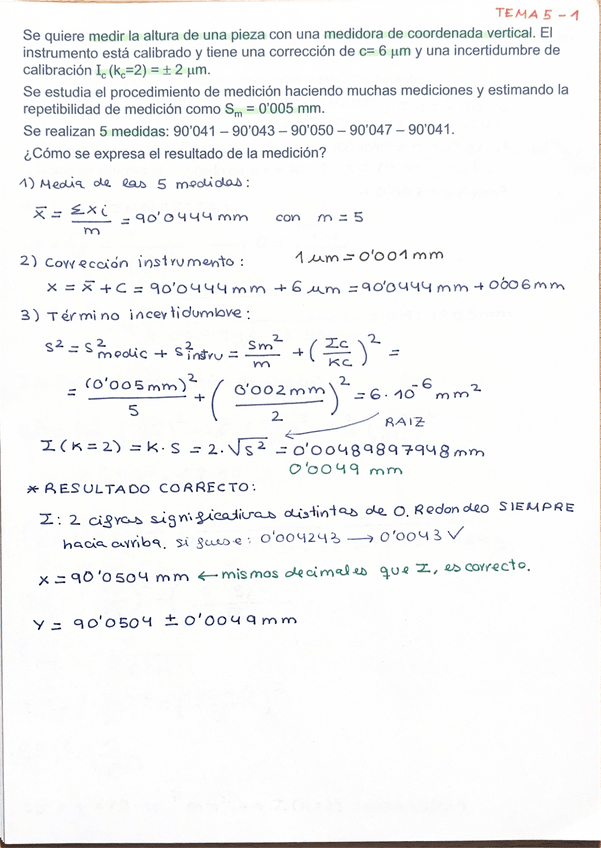 TEMA 5 - 1
Se quiere medir la altura de una pieza con una medidora de coordenada vertical. El
instrumento está calibrado y tiene una corrección de c= 6 μm y una incertidumbre de
calibración Ic (kc=2) = ± 2 μm.
Se estudia el procedimiento de medición haciendo muchas mediciones y estimando la
repetibilidad de medición como Sm = 0'005 mm.
Se realizan 5 medidas: 90'041 – 90'043 – 90'050 – 90'047 – 90'041.
¿Cómo se expresa el resultado de la medición?
1) Media de las 5 medidas:
x̄ = Σxi / m = 90'0444 mm con m = 5
2) Corrección instrumento: 1 μm = 0'001 mm
x = x̄ + c = 90'0444 mm + 6 μm = 90'0444 mm + 0'006 mm
3) Término incertidumbre:
s² = s²medic + s²instru = Sm²/m + (Ic/Kc)² =
= (0'005 mm)²/5 + (0'002 mm/2)² = 6·10⁻⁶ mm²
RAIZ
I (K=2) = K·S = 2·√s² = 0'00489897948 mm
0'0049 mm
* RESULTADO CORRECTO:
I: 2 cifras significativas distintas de 0. Redondeo SIEMPRE
hacia arriba. si fuese: 0'004243 → 0'0043 ✓
x = 90'0504 mm ← mismos decimales que I, es correcto.
Y = 90'0504 ± 0'0049 mm